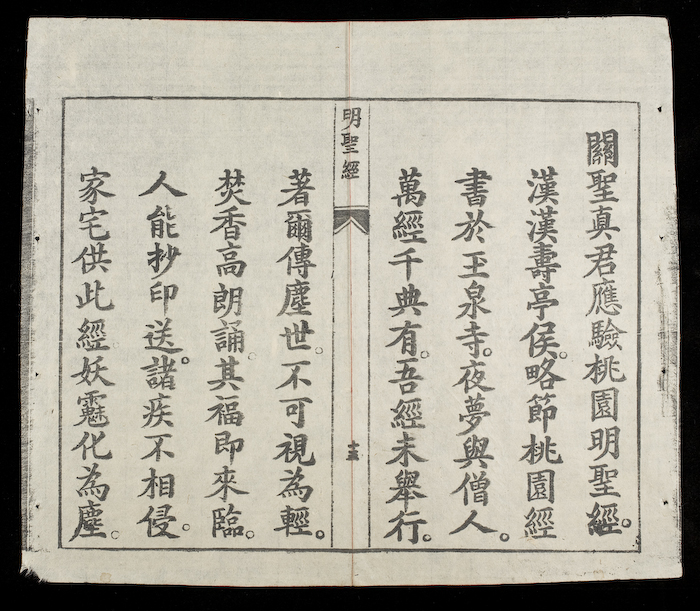 關聖真君應驗桃園明聖經。
漢漢壽亭侯。略節桃園經
書於玉泉寺。夜夢與僧人。
萬經千典有。吾經未舉行。
明聖經
十五
著爾傳塵世。不可視為輕。
焚香高朗誦。其福即來臨。
人能抄印送。諸疾不相侵。
家宅供此經。妖魔化為塵。